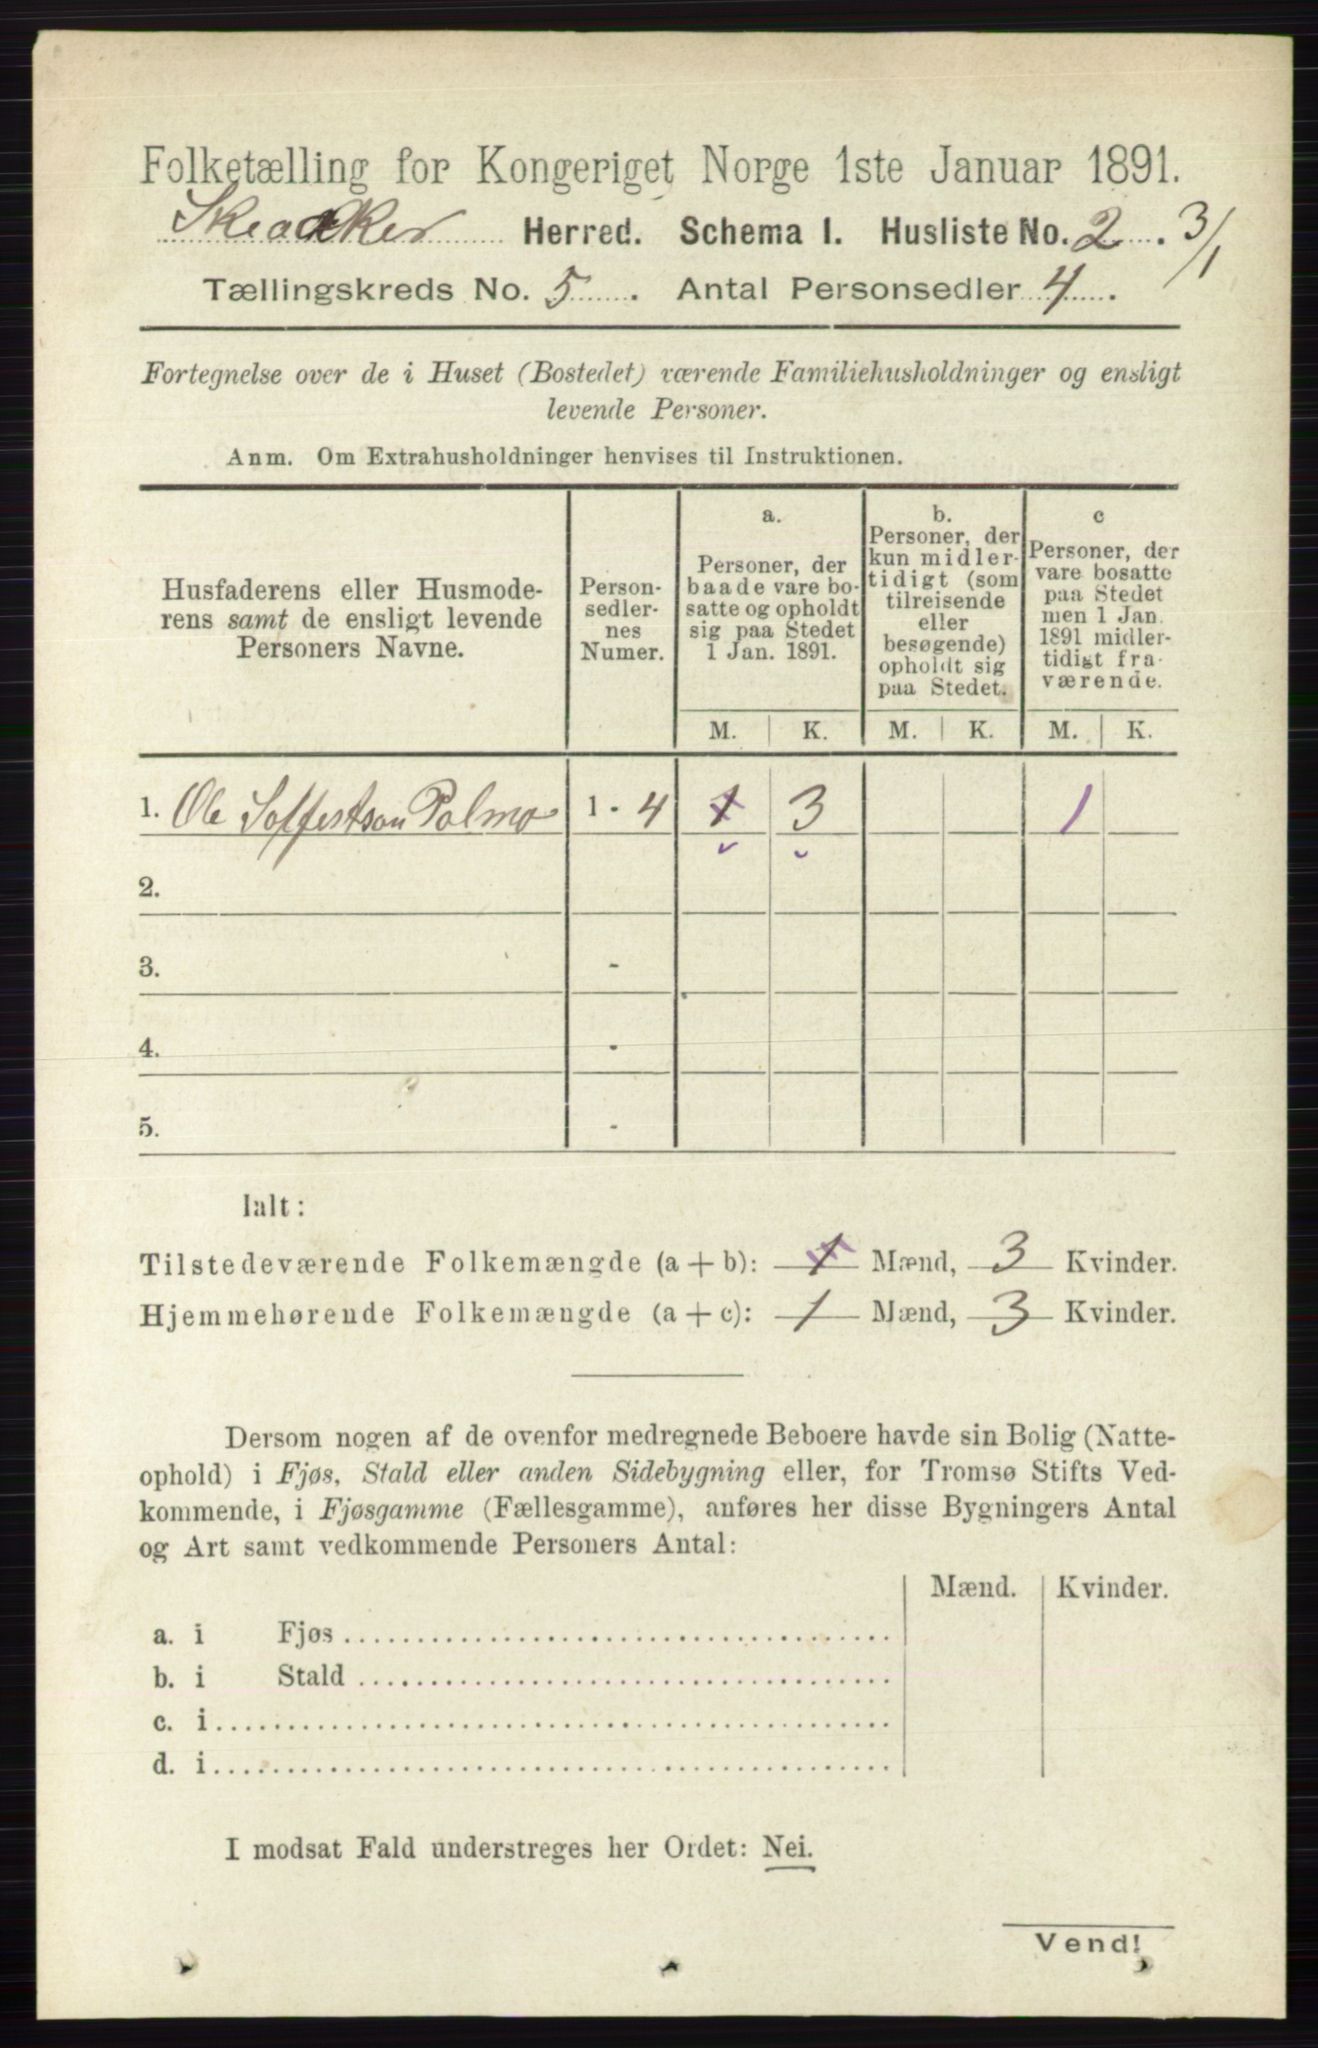 Folketælling for Kongeriget Norge 1ste Januar 1891.
Skeaker Herred. Schema I. Husliste No. 2. 3/1
Tællingskreds No. 5. Antal Personsedler 4.
Fortegnelse over de i Huset (Bostedet) værende Familiehusholdninger og ensligt
levende Personer.
Anm. Om Extrahusholdninger henvises til Instruktionen.
Husfaderens eller Husmode-
rens samt de ensligt levende
Personers Navne.
Person-
sedler-
nes
Numer.
a.
Personer, der
baade vare bo-
satte og opholdt
sig paa Stedet
1 Jan. 1891.
b.
Personer, der
kun midler-
tidigt (som
tilreisende
eller
besøgende)
opholdt sig
paa Stedet.
c
Personer, der
vare bosatte
paa Stedet
men 1 Jan.
1891 midler-
tidigt fra-
værende.
M. K. M. K. M. K.
1. Ole Palmo 1 - 4 1 3 1
2.
3. -
4. -
5. -
Ialt:
Tilstedeværende Folkemængde (a + b): 1 Mænd, 3 Kvinder.
Hjemmehørende Folkemængde (a + c): 1 Mænd, 3 Kvinder.
Dersom nogen af de ovenfor medregnede Beboere havde sin Bolig (Natte-
ophold) i Fjøs, Stald eller anden Sidebygning eller, for Tromsø Stifts Ved-
kommende, i Fjøsgamme (Fællesgamme), anføres her disse Bygningers Antal
og Art samt vedkommende Personers Antal:
Mænd. Kvinder.
a. i Fjøs
b. i Stald
c. i
d. i
I modsat Fald understreges her Ordet: Nei.
Vend!